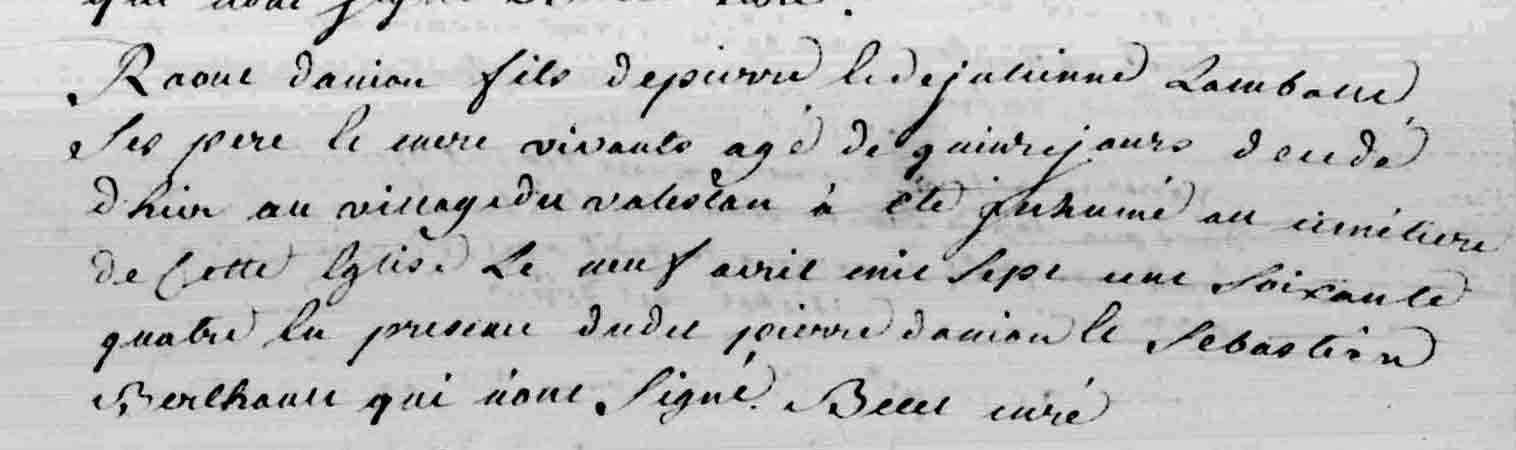 qui n'ont signé
Raoul danion fils de pierre et de julienne Lamballe
Ses pere et mere vivants agé de quinze jours decedé
d'hier au village du valeslan à été inhumé au cimétiere
de Cette Eglise Le neuf avril mil Sept cent Soixante
quatre En presence dudit pierre danion et Sebastien
Berthault qui n'ont Signé. Becel curé